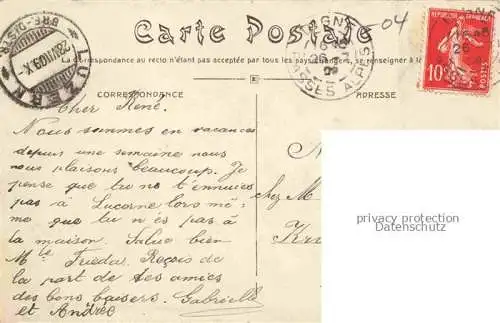 Carte Postale
La Correspondance au recto n'étant pas acceptée par tous les pays étrangers, se renseigner à la
CORRESPONDANCE
ADRESSE
LUZERN
BRF. DIST.
28.VII.09.X
DIGNE
BASSES ALPES
04
REPUBLIQUE FRANÇAISE
10c
POSTES
Cher René.
Nous sommes en vacances
depuis une semaine nous
nous plaisons beaucoup. Je
pense que tu ne t'ennuies
pas à Lucerne lors mê-
me que tu n'és pas à
la maison. Salue bien
Mlle Friedas. Reçois de
la part de tes amies
des bons baisers. Gabrielle
et Andrée
chez M
privacy protection
Datenschutz